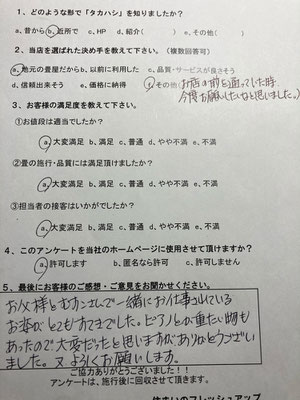 1、どのような形で「タカハシ」を知りましたか？
a、昔から b、近所で c、HP d、紹介( ) e、その他( )
2、当店を選ばれた決め手を教えて下さい。（複数回答可）
a、地元の畳屋だから b、以前に利用した c、品質・サービスが良さそう
d、信頼出来そう e、価格に納得 f、その他( お店の前を通って
今度お願いしたいなと思いました。)
3、お客様の満足度を教えて下さい。
①お値段は適当でしたか？
a、大変満足 b、満足 c、普通 d、やや不満 e、不満
②畳の施行・品質には満足頂けましたか？
a、大変満足 b、満足 c、普通 d、やや不満 e、不満
③担当者の接客はいかがでしたか？
a、大変満足 b、満足 c、普通 d、やや不満 e、不満
4、このアンケートを当社のホームページに使用させて頂けますか？
a、許可します b、匿名なら許可 c、許可しません
5、最後にお客様のご感想・ご意見をお聞かせください。
お父様とむすこさんで一緒にお仕事されている
お姿が とてもすてきでした。ピアノとか重たい物も
あったので大変だったと思いますが、ありがとうござい
ました。又よろしくお願いします。
ご協力ありがとうございました！！
アンケートは、施行後に回収させて頂きます。
住まいのフレッシュアップ